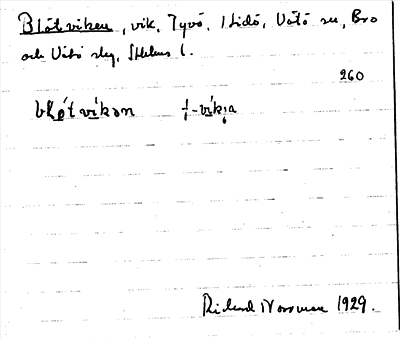 Blötviken, vik, Tyvö, i Lidö, Vätö sn, Bro
och Vätö slg, Sthlms l.
260
blø̀tvíkan f-víkja
Rickard Norrman 1929.